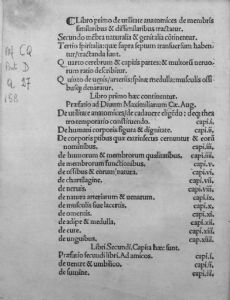 Libro primo de utilitate anatomices de membris
similaribus & dissimilaribus tractatur.
Secundo testes naturalia & genitalia continentur.
Tertio spiritalia: quæ supra septum transuersum haben
tur: tractanda sunt.
Quarto cerebrum & capitis partes: & multorum neruo
rum ratio describitur.
Quinto de uenis: arteriis: spinæ medulla: musculis ossi
busque denaratur.
Libro primo hæc continentur.
Præfatio ad Diuum Maximilianum Cæ. Aug.
De utilitate anatomices: de cadauere eligendo: deque thea
tro temporario constituendo. capi.i.
De humani corporis figura & dignitate. capi.ii.
De corporis partibus quæ extrinsecus cernuntur & eorum
nominibus. capi.iii.
de humorum & membrorum qualitatibus. capi.iiii.
de membrorum functionibus. capi.v.
de ossibus & eorum natura. capi.vi.
de chartilagine. capi.vii.
de neruis. capi.viii.
de natura arteriarum & uenarum. capi.ix.
de musculis siue lacertis. capi.x.
de omentis. capi.xi.
de adipe & medulla. capi.xii.
de cute. capi.xiii.
de unguibus. capi.xiiii.
Libri Secundi. Capita hæc sunt.
Præfatio secundi libri. Ad amicos. capi.i.
de uentre & umbilico. capi.ii.
de sumine. capi.iii.
CQ
D
158